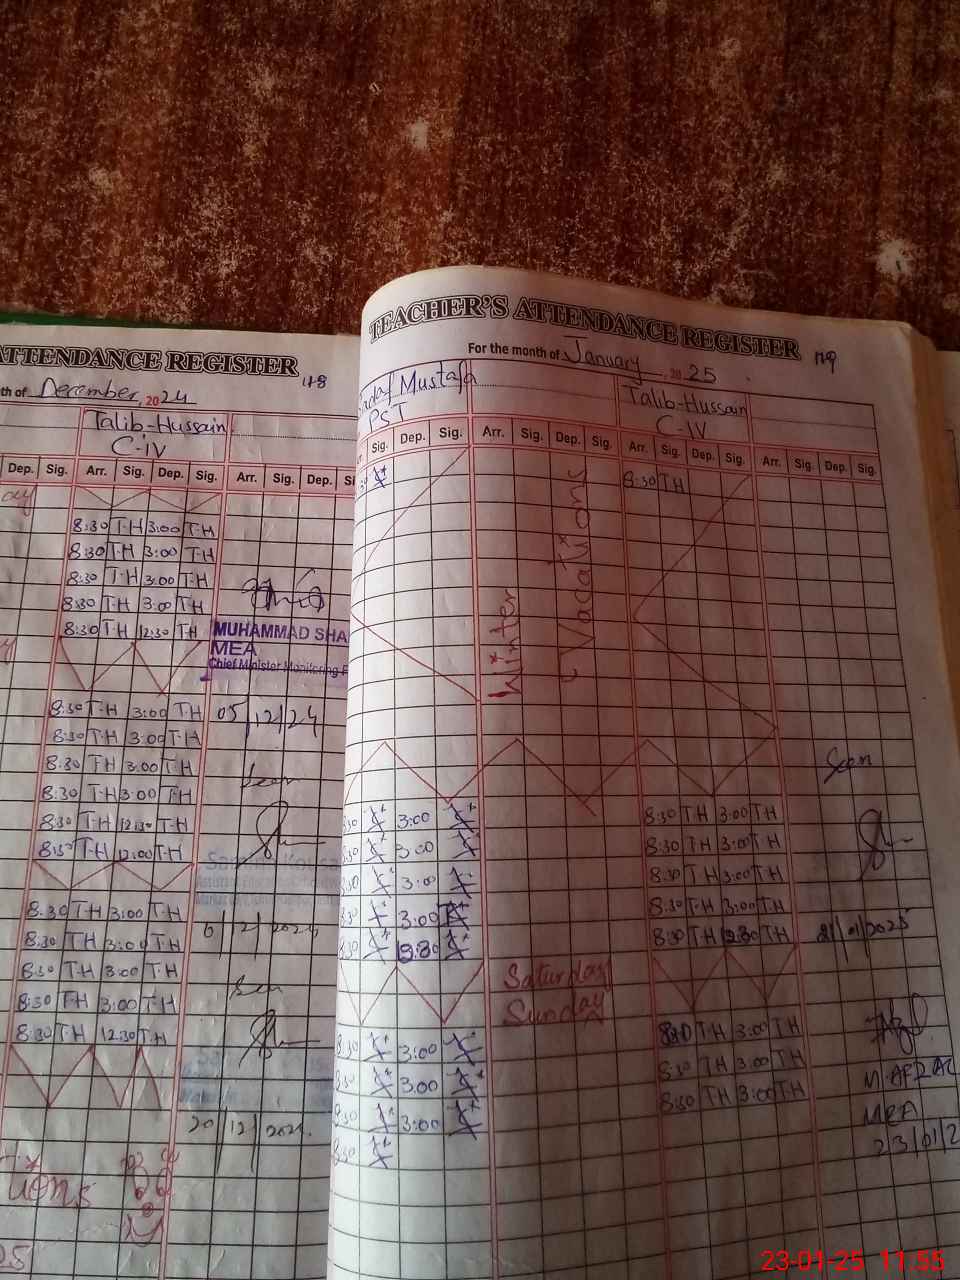 ATTENDANCE REGISTER
th of December, 2024
118
Talib-Hussain
C-iV
Dep. Sig. Arr. Sig. Dep. Sig. Arr. Sig. Dep.
8:30 T-H 3:00 T-H
8:30 T-H 3:00 T-H
8:30 T-H 3:00 T-H
8:30 T-H 3:00 T-H
8:30 T-H 12:30 T-H
MUHAMMAD SHA
MEA
Chief Minister Monitoring F
8:30 T-H 3:00 T-H 05/12/24
8:30 T-H 3:00 T-H
8:30 T-H 3:00 T-H
8:30 T-H 3:00 T-H
8:30 T-H 12:30 T-H
8:30 T-H 12:00 T-H
8:30 T-H 3:00 T-H
8:30 T-H 3:00 T-H
8:30 T-H 3:00 T-H
8:30 T-H 3:00 T-H
8:30 T-H 12:30 T-H
20/12/202
TEACHER'S ATTENDANCE REGISTER
119
For the month of January 2025
Sadaf Mustafa
PST
Talib-Hussain
C-IV
Sig. Dep. Sig. Arr. Sig. Dep. Sig. Arr. Sig. Dep. Sig. Arr. Sig. Dep. Sig.
8:30 T H
Winter
Vacations
Seen
3:00 8:30 T-H 3:00 T-H
3:00 8:30 T-H 3:00 T-H
3:00 8:30 T-H 3:00 T-H
3:00 8:30 T-H 3:00 T-H
8:30 T-H 12:30 T-H 21/01/2025
Saturday
Sunday
8:30 3:00 8:30 T-H 3:00 T-H
8:30 3:00 8:30 T-H 3:00 T-H
8:30 3:00 8:30 T-H 3:00 T-H
8:30
MEA
23/01/2
23-01-25 11:55